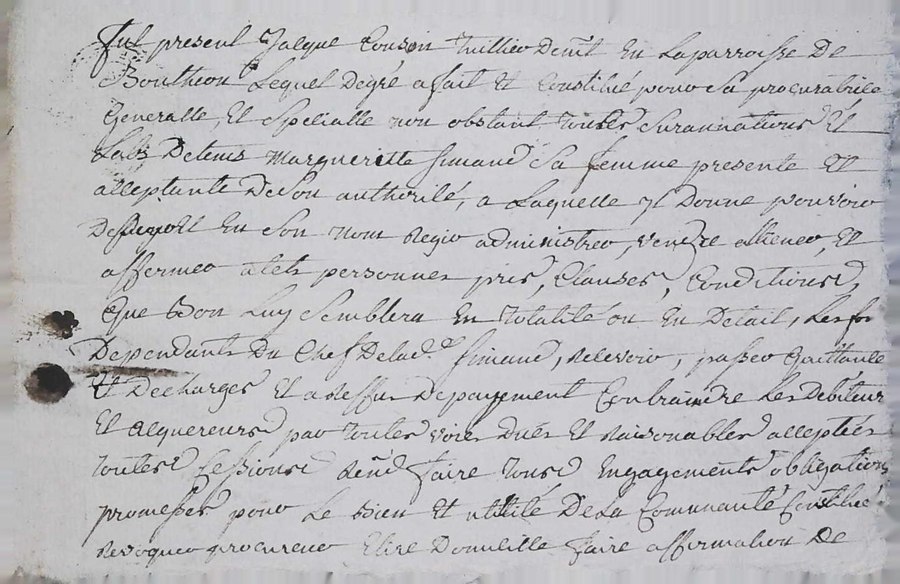 fut present Jacque Cousin Tuillier demt En La parroisse De
Boutheon Lequel De gré a fait Et Constitué pour sa procuratrice
Generalle, Et Specialle non obstant toutes Surannations Et
Laps De tems Margueritte Simand Sa femme presente Et
acceptante De Son authorité, a Laquelle yl Donne pouvoir
De En Son nom Regir administrer, vendre alliener, Et
affermer a tels personnes pris, Clauses, Conditions,
Que Bon Luy Semblera En totalité ou En Detail, Les
Dependants Du Chef De lad.e Simand, Recevoir, passer Quittance
Et Decharges Et a Reffus De payement Contraindre Les Debiteur
Et acquereurs par toutes voies Dues Et Raisonables accepter
toutes Cessions faire tous Engagements obligations
promesses pour Le Bien Et utilité De La Communauté Constitué
Revoquer procureur Elire Domicille faire affirmation De